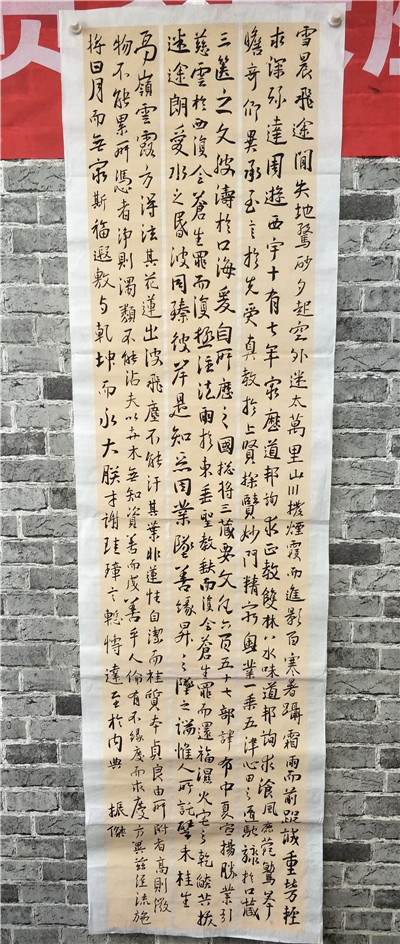 雪晨飛途閒失地驚砂夕起空外迷太萬里山川撥煙霞而進影百寒暑躡霜雨而前蹤誠重勞輕
求深弥達周遊西宇十有七年窮歷道邦詢求正教雙林八水味道邦詢求飡風鹿菀鷲峯
瞻奇仰異承至言於先受真教於上賢探賾妙門精窮奧業一乘五津心田之道馳驟於口藏
三篋之文波濤於口海爰自所歷之國總將三藏要文凡六百五十七部譯布中夏宣揚勝業引
慈雲於西復令蒼生罪而復極注法雨於東垂聖教缺而復令蒼生罪而還福濕火宅之乾燄共拔
迷途朗愛水之昏波同臻彼岸是知惡因業墜善緣昇之墜之端惟人所託譬木桂生
高嶺雲露方得法其花蓮出波飛塵不能汙其葉非蓮性自潔而桂質本貞良由所附者高則微
物不能累所憑者淨則濁類不能沾夫以卉木無知資善而成善乎人倫有不緣慶而求慶方冀茲經流施
將日月而無窮斯福遐敷与乾坤而永大朕才謝珪璋言慙博達至於內典
振傑